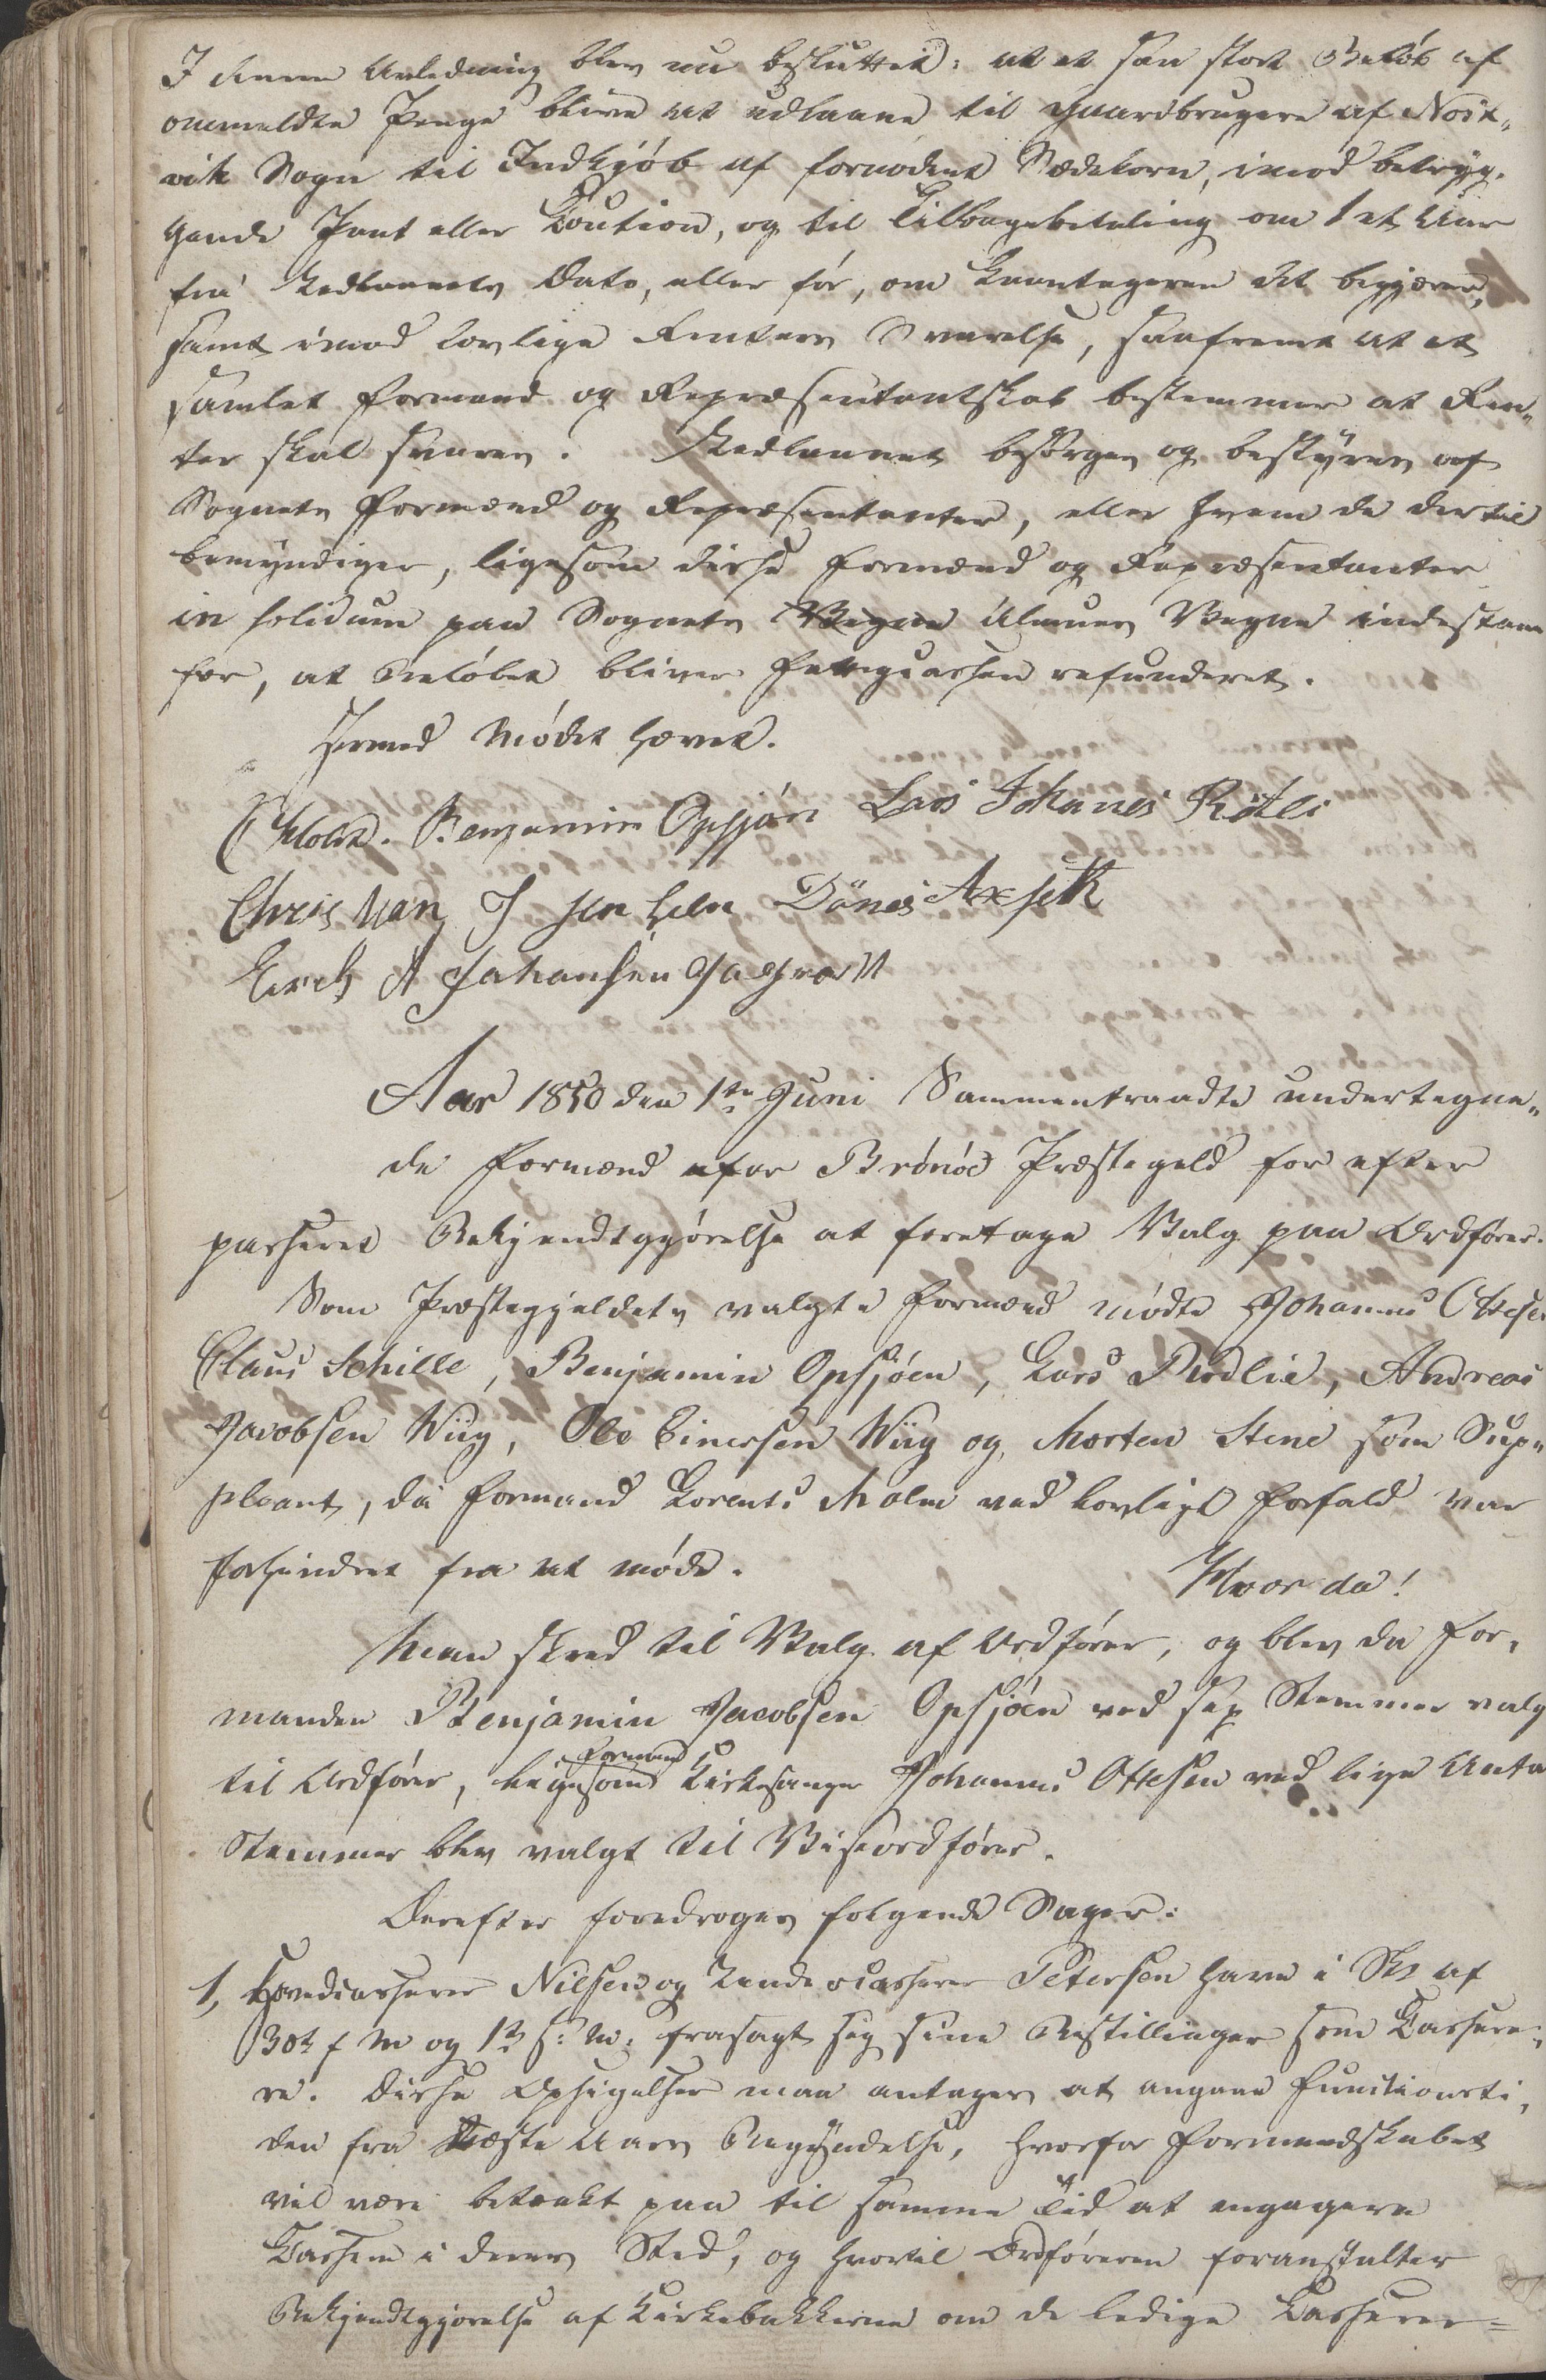 I denne Anledning blev nu besluttet: at et saa stort Beløb af
ommeldte Penge blive at udlaane til Gaardbrugere af Nord„
vik Sogn til Indkjøb af fornødent Sædekorn, imod betryg„
gende Pant eller Caution, og til Tilbagebetaling om 1 et Aar
fra Udlaanets Dato, eller før, om Laantageren det begjærer,
samt imod lovlige Renters Svarelse, saafremt at et
samlet Formand og Repræsentantskab bestemmer at Ren„
ter skal svares. Udlaanet besørges og bestyres af
Sognets Formænd og Repræsentanter, eller hvem de dertil
bemyndiger, ligesom disse Formænd og Repræsentanter
in solidum paa Sognets Vegne Almues Vegne indestaae
for, at Beløbet bliver Fattigcassen refunderet.
Hermed Mødet hævet.
C Holst. Benjamin Opsjøn Lars Johanes Rötli
Christian J Jensen Dönes Axsel
Erich A Johansen
Aar 1850 den 1te Juni Sammentraadte undertegne„
de Formænd for Brønøe Præstegield for efter
passeret Bekjendtgjørelse at foretage Valg paa Ordfører.
Som Præstegjeldets valgte Formænd mødte Johannes Ottesen
Claus Schille, Benjamin Opsjøen, Lars Rødlie, Andreas
Jacobsen Wiig, Ole Einersen Wiig og Morten Stene som Sup„
pleant, da Formand Lorents Molm ved lovligt Forfald var
forhindret fra at møde. Hvorda!
Man skred til Valg af Ordfører, og blev da For„
manden Benjamin Jacobsen Opsjøen ved sex Stemmer valg
til Ordfører, ligesom Formand Kirkesanger Johannes Ottesen ved lige Anta
Stemmer blev valgt til Viseordfører.
Derefter foredroges følgende Sager:
1, Hovedcasserer Nielsen og Undercasserer Petersen have i Skr af
30te f M og 1te d: M: frasagt sig sine Bestillinger som Cassere„
re. Disse Opsigelser maa antages at angaae Functionsti„
den fra Næste Aars Begyndelse, hvorfor Formandskabet
vil være betænkt paa til samme Tid at engagere
Cassere i deres Sted, og hvortil Ordføreren foranstalter
Bekjendtgjørelse af Kirkebakkerne om de ledige Casserer=